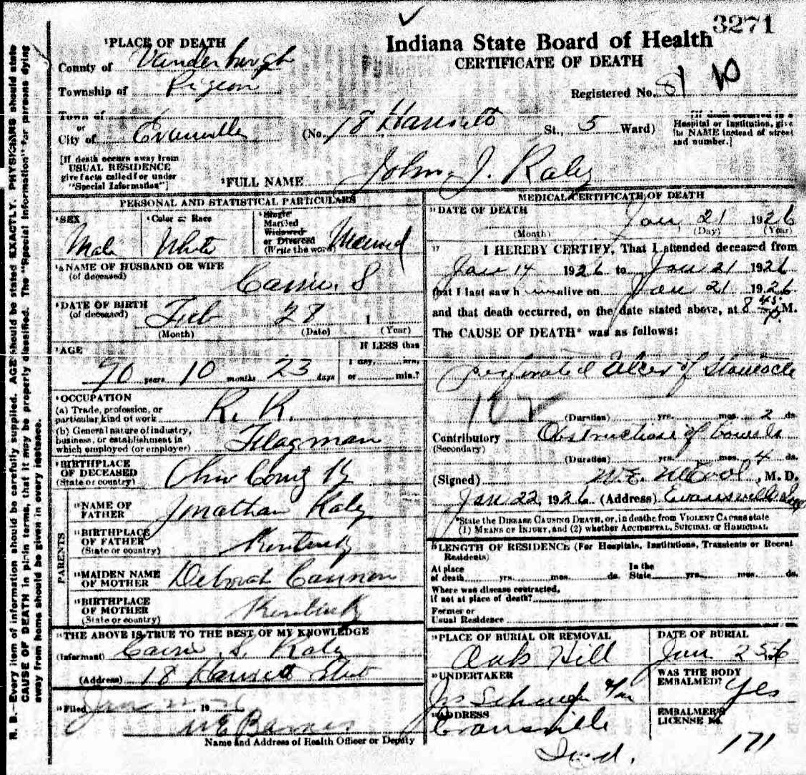 3271
Indiana State Board of Health
CERTIFICATE OF DEATH
Registered No. 81
PLACE OF DEATH
County of Vanderburgh
Township of Pigeon
Town of
or
City of Evansville (No. 18 St., 5 Ward)
[If death occurred in a Hospital or Institution, give its NAME instead of street and number.]
[If death occurs away from USUAL RESIDENCE give facts called for under "Special Information"]
FULL NAME John J. Raley
PERSONAL AND STATISTICAL PARTICULARS
SEX Male
Color or Race White
Single
Married
Widowed
or Divorced
(Write the word) Married
NAME OF HUSBAND OR WIFE
(of deceased) Carrie S
DATE OF BIRTH
(of deceased) Feb 28 1
(Month) (Date) (Year)
AGE
70 years 10 months 23 days
IF LESS than
1 day, hrs.
or min.?
OCCUPATION
(a) Trade, profession, or
particular kind of work R. R.
(b) General nature of industry,
business, or establishment in
which employed (or employer) Flagman
BIRTHPLACE
OF DECEASED
(State or country) Ohio County Ky
PARENTS
NAME OF
FATHER Jonathan Raley
BIRTHPLACE
OF FATHER
(State or country) Kentucky
MAIDEN NAME
OF MOTHER Deborah Cannon
BIRTHPLACE
OF MOTHER
(State or country) Kentucky
THE ABOVE IS TRUE TO THE BEST OF MY KNOWLEDGE
(Informant) Carrie S. Raley
(Address) 18
Filed 19
Barnes
Name and Address of Health Officer or Deputy
MEDICAL CERTIFICATE OF DEATH
DATE OF DEATH Jan 21 1926
(Month) (Day) (Year)
17 I HEREBY CERTIFY, That I attended deceased from
Jan 14 1926 to Jan 21 1926
that I last saw him alive on Jan 21 1926
and that death occurred, on the date stated above, at 8 45 P M.
The CAUSE OF DEATH* was as follows:
perforated Ulcer of Stomach
(Duration) yrs. mos. 2 ds.
Contributory
(Secondary) Obstruction of bowels
(Duration) yrs. mos. 4 ds.
(Signed) W. E. M. D.
Jan 22, 1926 (Address) Evansville Ind
*State the DISEASE CAUSING DEATH, or, in deaths from VIOLENT CAUSES state
(1) MEANS OF INJURY, and (2) whether ACCIDENTAL, SUICIDAL or HOMICIDAL.
LENGTH OF RESIDENCE (For Hospitals, Institutions, Transients or Recent
Residents)
At place
of death yrs. mos. ds.
In the
State yrs. mos. ds.
Where was disease contracted,
if not at place of death?
Former or
Usual Residence
PLACE OF BURIAL OR REMOVAL
Oak Hill
DATE OF BURIAL
Jan 25
UNDERTAKER
WAS THE BODY
EMBALMED? Yes
ADDRESS
Evansville
Ind.
EMBALMER'S
LICENSE No. 171
N. B.—Every item of information should be carefully supplied. AGE should be stated EXACTLY. PHYSICIANS should state
CAUSE OF DEATH in plain terms, that it may be properly classified. The "Special Information" for persons dying
away from home should be given in every instance.